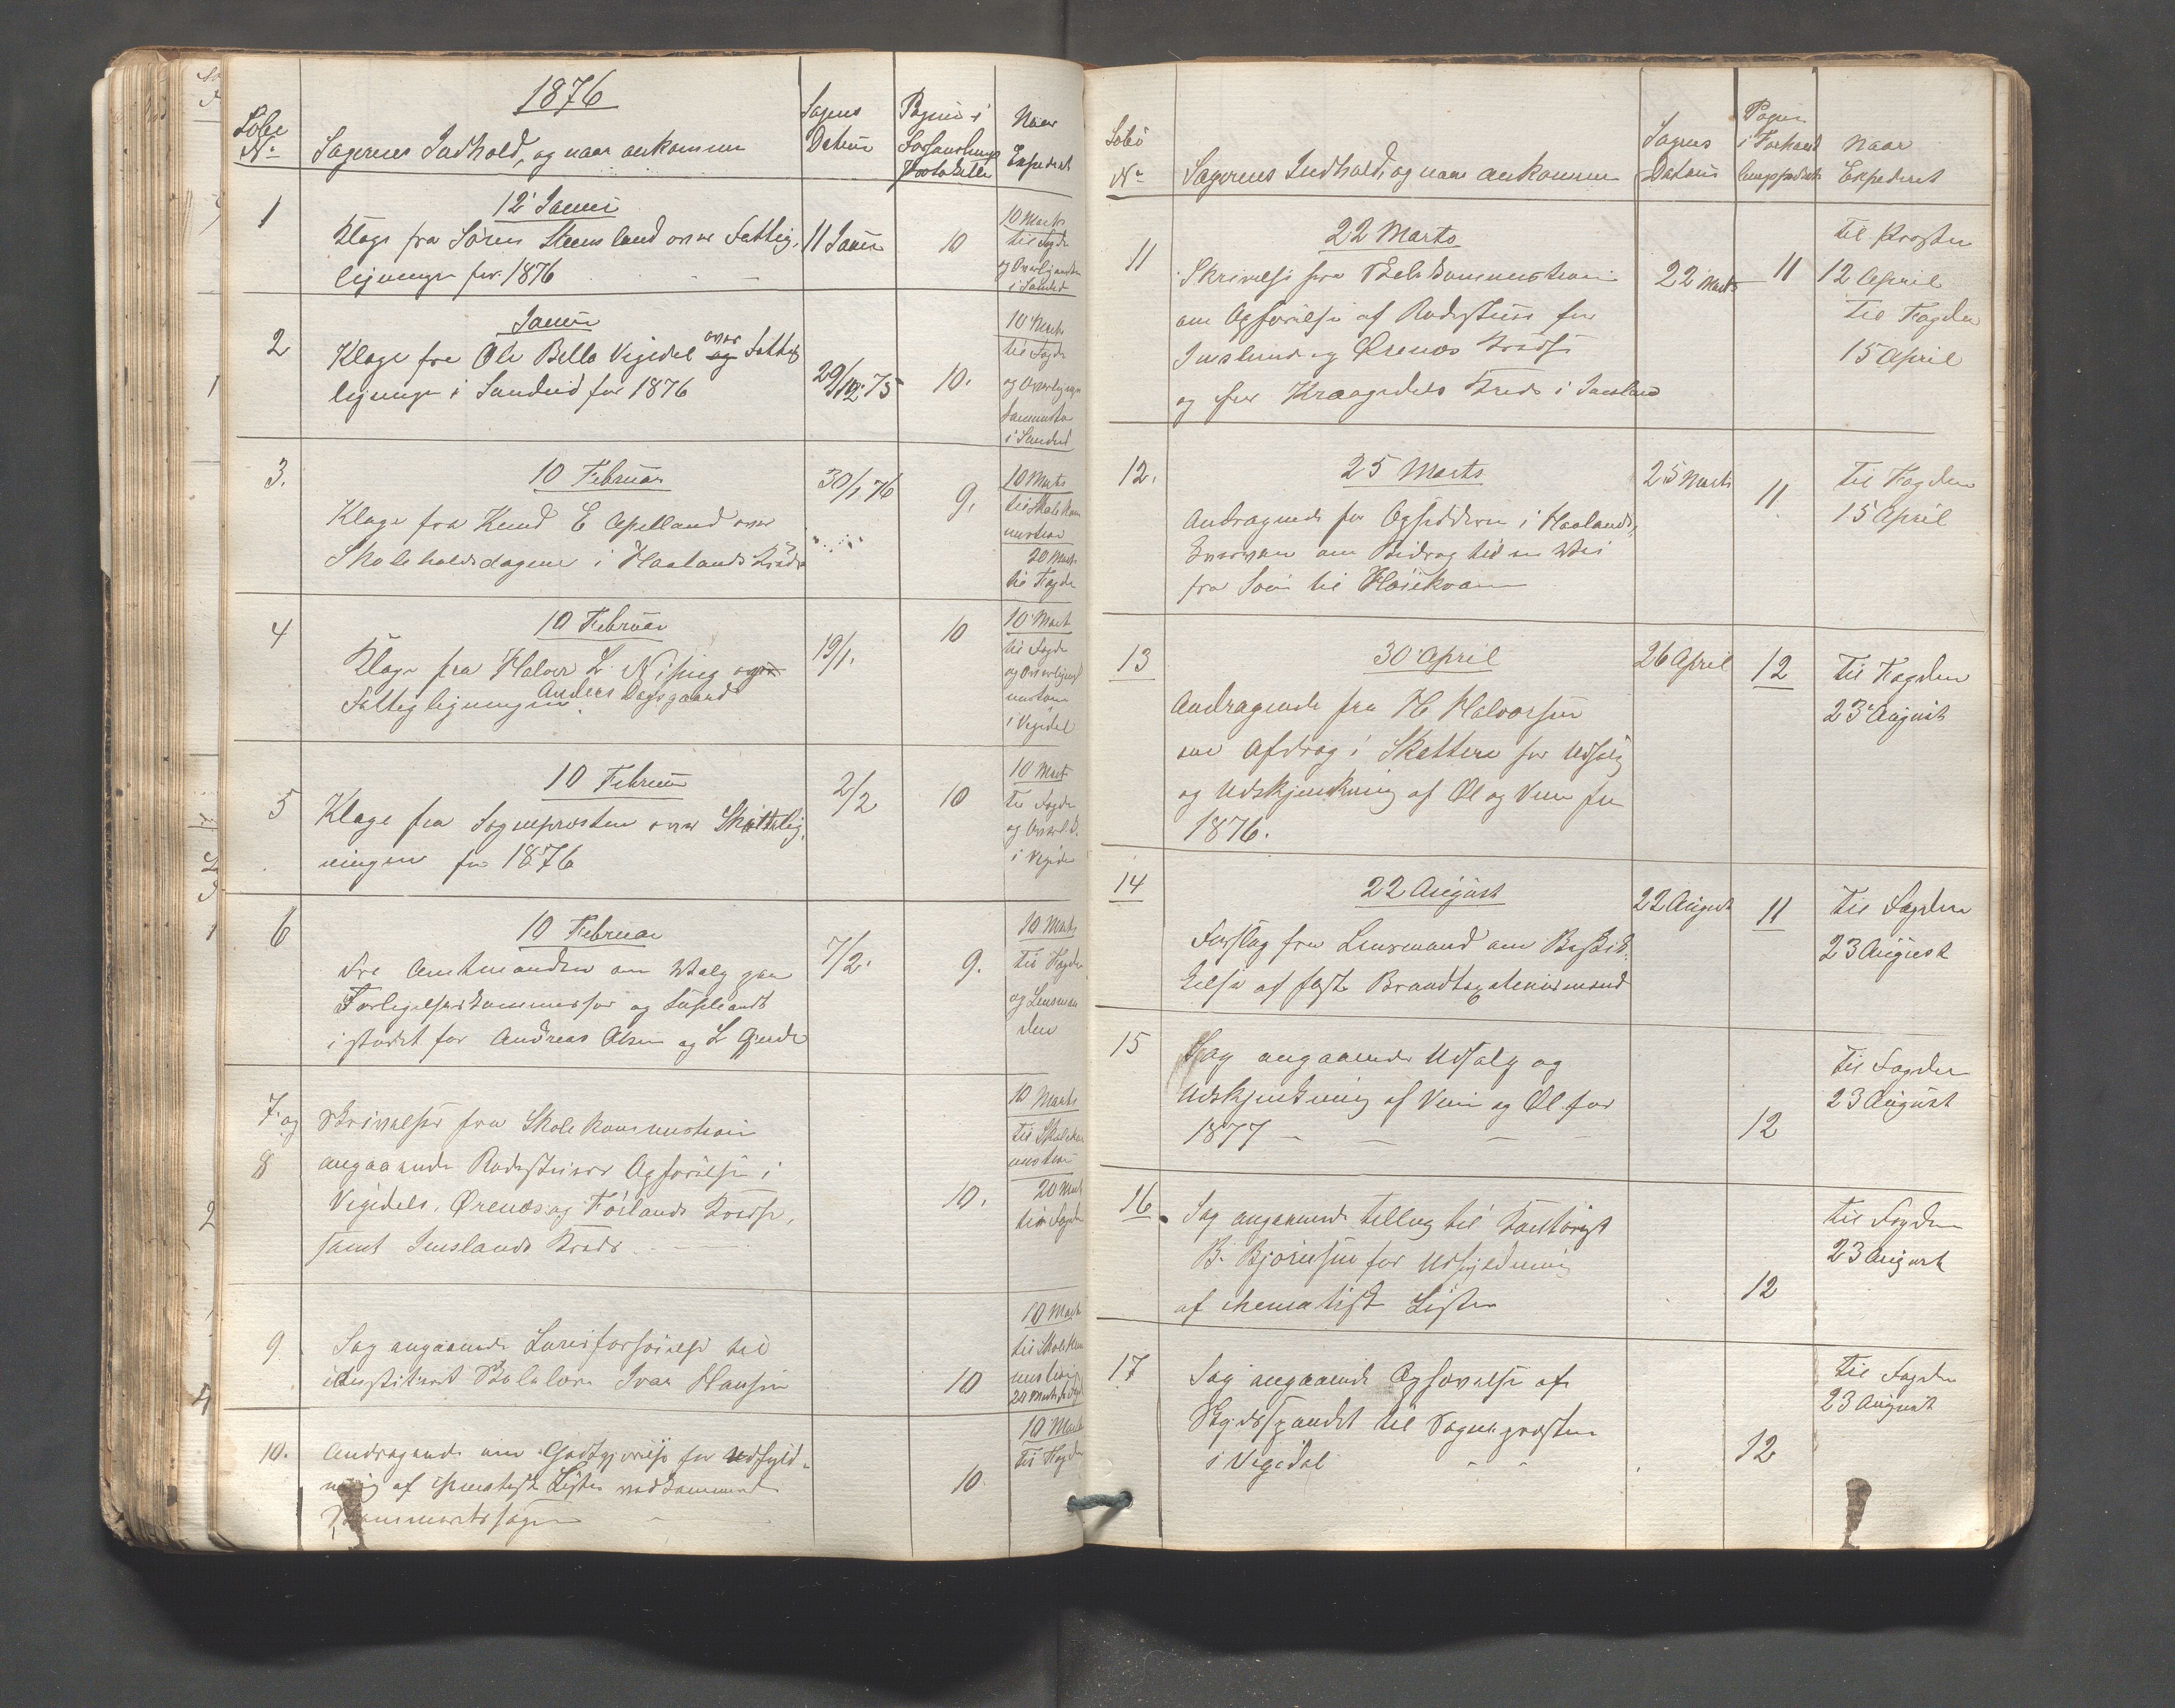 1876
Løbe
No
Sagernes Indhold, og naar ankommen
Sagens
Datum
Pagina i
Forhandlings
Protokollen
Naar
Expederet
1
12 Januar
Klage fra Søren Steensland over Fattig-
ligningen for 1876
11 Januar
10
10 Marts
til Fogden
og Overligningen
i Sandeid
2
Januar
Klage fra Ole Bella Vigedal over Fattig
ligningen i Sandeid for 1876
29/12 75
10.
10 Marts
til Fogden
og Overlignings
kommission
i Sandeid
3.
10 Februar
Klage fra Knud E Apelland over
Skoleholdsdagene i Haalands Kreds
30/1 76
9.
10 Marts
til Skolekom
mission
20 Marts
til Fogden
4
10 Februar
Klage fra Halvor L. Nising
Fattigligningen Anders Dagsgaard
19/1.
10
10 Marts
til Fogden
i Vigedal
5
10 Februar
Klage fra Sogneprosten over Skatteligi
ningen for 1876
2/2
10
10 Marts
til Fogden
og Overl.
i Vigedal
6
10 Februar
Fra Amtmanden om Valg paa
Forligelseskommissær og Supleant
i stedet for Andreas Olsen og L Gjerde
7/2.
9.
10 Marts
til Fogden
og Lensman
den
7 og
8
Skrivelser fra Skolekommission
angaaende Rodestuers Opførelse i
Vigedals, Ørenes og Førlands Kredse,
samt Imslands Kreds
10.
10 Marts
til Skolekom
mission
20 Marts
til Fogden
9
Sag angaaende Lønsforhøielse til
Skolelærer Ivar Hansen
10
10 Marts
til Skolekom
mission
10.
Andragende om Godtgjørelse for Udfyld-
ning af skematisk Lister vedkommende
10.
10 Marts
til Fogden
Løbe
No
Sagernes Indhold, og naar ankommen
Sagens
Datum
Pagina
i Forhand
lingsprotok
Naar
Expederet
11
22 Marts
Skrivelse fra Skolekommission
om Opførelse af Rodestuer for
Imsland og Ørenes Kredse
og for Kraagedals Kreds i Imsland
22 Marts
11
til Prosten
12 April
til Fogden
15 April
12.
25 Marts
Andragende fra Opsidderne i Haalands
om Bidrag til en Vei
fra Søen til Høiekvam
25 Marts
11
til Fogden
15 April
13
30 April
Andragende fra H Halvorsen
om Afdrag i Skatten for Udsalg
og Udskjenkning af Øl og Viin for
1876.
26 April
12
til Fogden
23 August
14
22 August
Forslag fra Lensmand om Beskik
kelse af faste Brandtaxationsmænd
22 August
11
til Fogden
23 August
15
Sag angaaende Udsalg og
Udskjenkning af Viin og Øl for
1877
12
til Fogden
23 August
16
Sag angaaende tillæg til
B. Bjørnsen for Udfyldning
af skematisk Lister
12
til Fogden
23 August
17
Sag angaaende Opførelse af
til Sogneprosten
i Vigedal
12
til Fogden
23 August